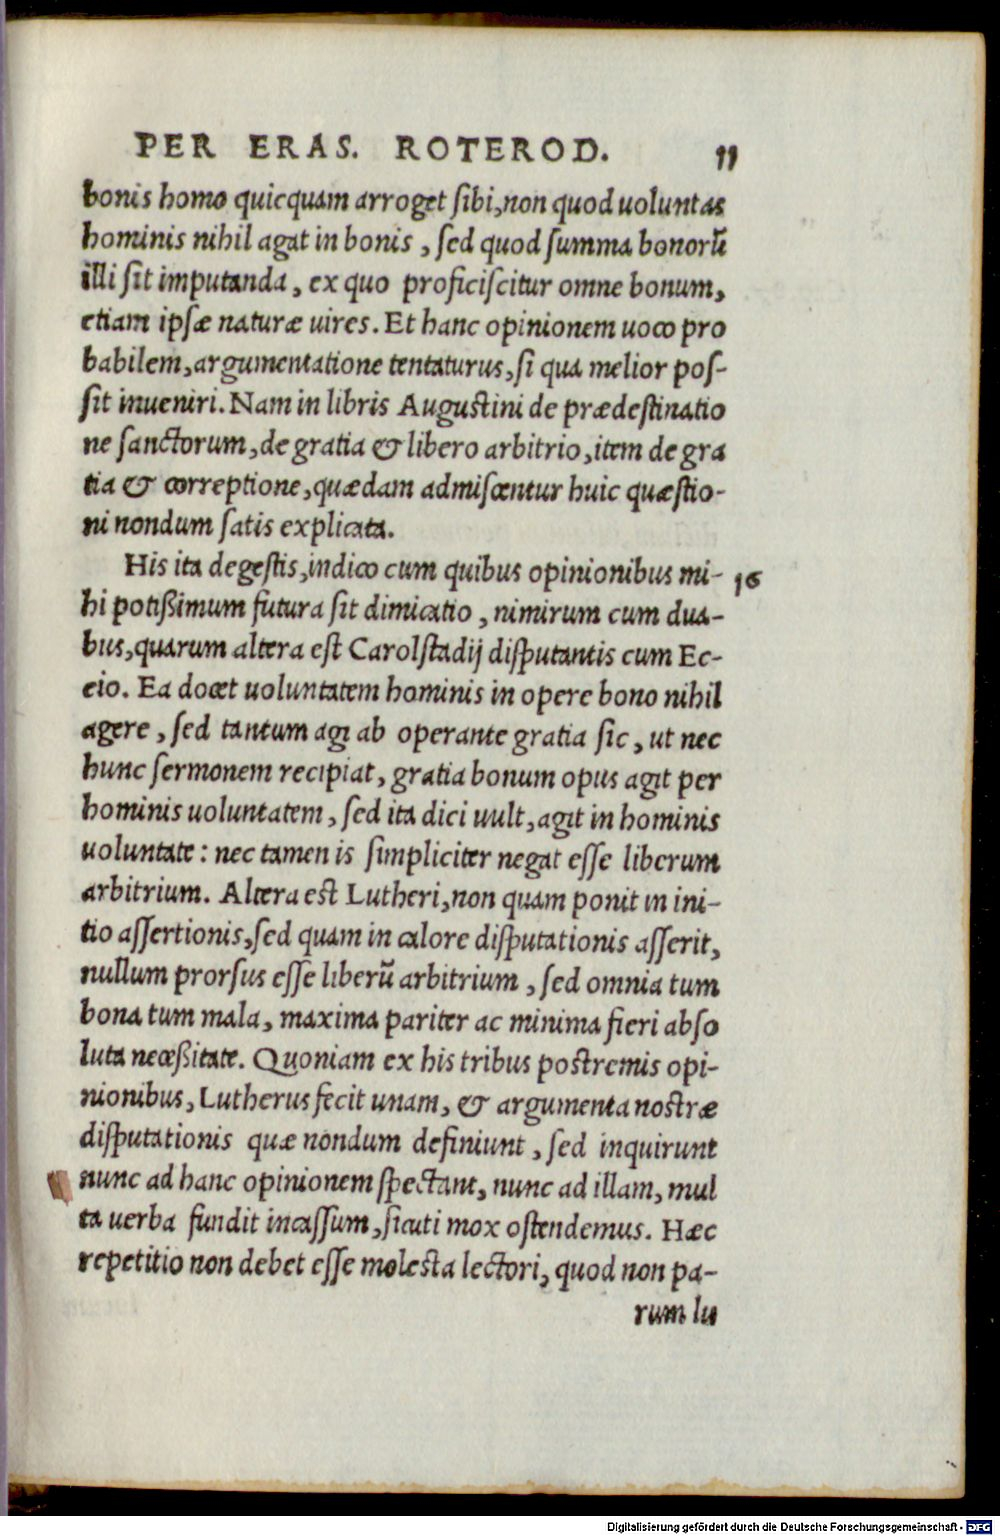 PER ERAS. ROTEROD. 11
bonis homo quicquam arroget ſibi, non quod uoluntas
hominis nihil agat in bonis, ſed quod ſumma bonorũ
illi ſit imputanda, ex quo proficiſcitur omne bonum,
etiam ipſæ naturæ uires. Et hanc opinionem uoco pro
babilem, argumentatione tentaturus, ſi qua melior poſ-
ſit inueniri. Nam in libris Auguſtini de prædeſtinatio
ne ſanctorum, de gratia & libero arbitrio, item de gra
tia & correptione, quædam admiſcentur huic quæſtio-
ni nondum ſatis explicata.
His ita degeſtis, indico cum quibus opinionibus mi- 16
hi potißimum futura ſit dimicatio, nimirum cum dua-
bus, quarum altera eſt Carolſtadij diſputantis cum Ec-
cio. Ea docet uoluntatem hominis in opere bono nihil
agere, ſed tantum agi ab operante gratia ſic, ut nec
hunc ſermonem recipiat, gratia bonum opus agit per
hominis uoluntatem, ſed ita dici uult, agit in hominis
uoluntate: nec tamen is ſimpliciter negat eſſe liberum
arbitrium. Altera eſt Lutheri, non quam ponit in ini-
tio aſſertionis, ſed quam in calore diſputationis aſſerit,
nullum prorſus eſſe liberũ arbitrium, ſed omnia tum
bona tum mala, maxima pariter ac minima fieri abſo
luta neceßitate. Quoniam ex his tribus poſtremis opi-
nionibus, Lutherus fecit unam, & argumenta noſtræ
diſputationis quæ nondum definiunt, ſed inquirunt
nunc ad hanc opinionem ſpectant, nunc ad illam, mul
ta uerba fundit incaſſum, ſicuti mox oſtendemus. Hæc
repetitio non debet eſſe moleſta lectori, quod non pa-
rum lu
Digitalisierung gefördert durch die Deutsche Forschungsgemeinschaft - DFG